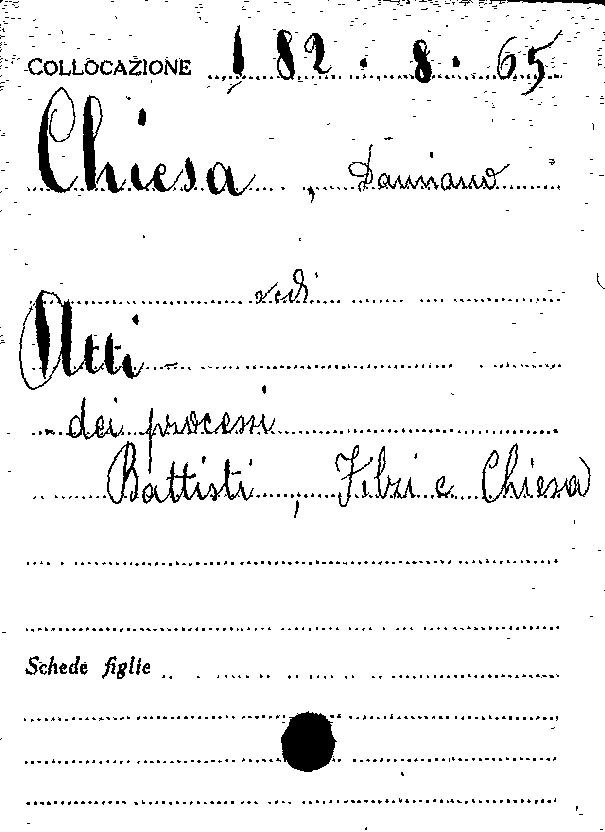 COLLOCAZIONE 182.8.65
Chiesa, Damiano
vedi
Atti
dei processi
Battisti, Filzi e Chiesa
Schede figlie